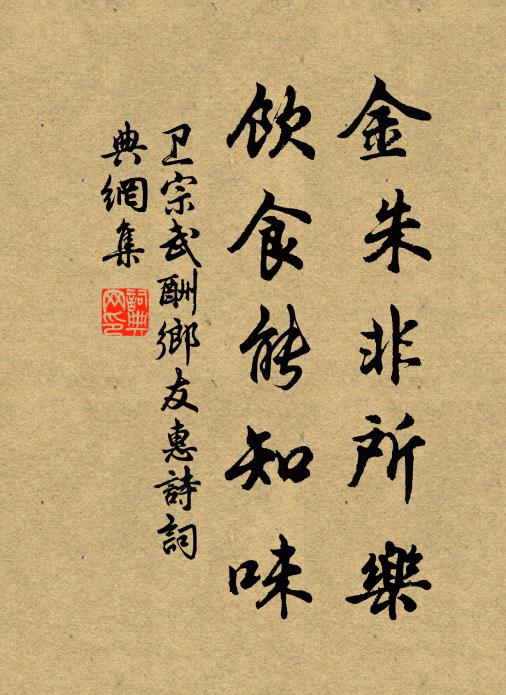 金朱非所樂
飲食能知味
卫宗武酬鄉友惠詩詞
典網集
詞典
网印